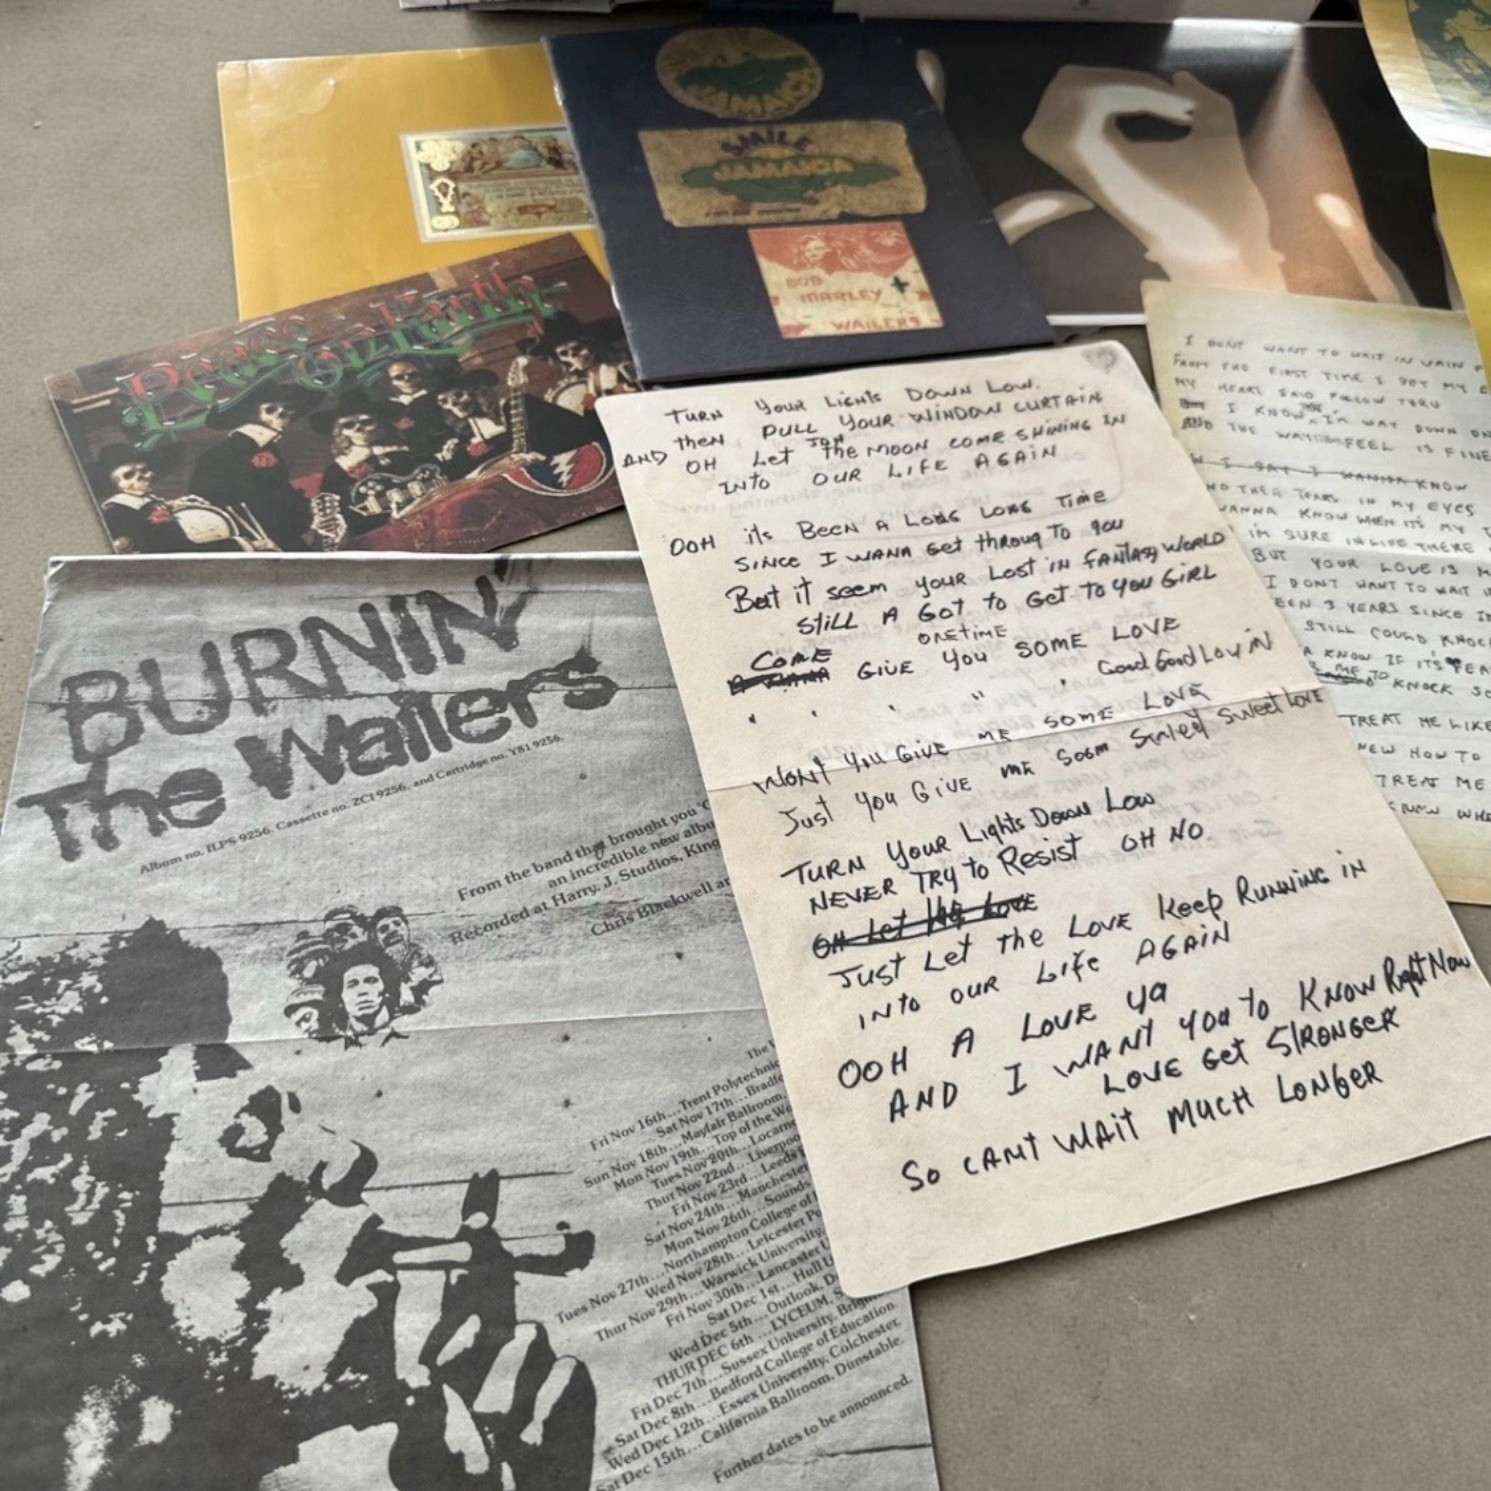 JAMAICA
SMILE
JAMAICA
BOB
MARLEY +
WAILERS
Peace on Earth
TURN YOUR LIGHTS DOWN LOW.
AND then PULL YOUR WINDOW CURTAIN
OH Let JAH the MOON COME SHINING IN
INTO OUR LIFE AGAIN
OOH its BEEN A LONG LONG TIME
SINCE I WANA Get throuq TO you
But it seem YOUR LOST IN FANTASY WORLD
StiLL A GOT to GET TO YOU GIRL
COME ONETIME
GIVE YOU SOME LOVE
Good Good LOVIN
WONT YOU GIVE ME SOME LOVE
Just YOU GIVE ME Soom Simley Sweet LOVE
TURN YOUR Lights Down Low
NEVER TRY to Resist OH NO
OH Let LOVE
JUST LET the LOVE Keep RUNNING IN
INto OUR LIfe AGAIN
OOH A LOVE YA
AND I WANT YOU to KNOW Right Now
LOVE Get STRONGER
SO CANT WAIT MUCH LONGER
I DONT WANT TO WAIT IN VAIN
FROM THE FIRST TIME I
MY HEART SAID FOLLOW THRU
I KNOW I'M WAY DOWN ON
AND THE WAY FEEL IS FINE
I WANNA KNOW
TEARS IN MY EYES
WANNA KNOW WHEN IT'S MY
I'M SURE IN LIFE THERE
BUT YOUR LOVE IS
I DONT WANT TO WAIT
3 YEARS SINCE
STILL COULD KNOCK
KNOW IF IT'S
ME TO KNOCK
TREAT ME LIKE
HOW TO
TREAT ME
KNOW
BURNIN'
The Wailers
Album no. ILPS 9256. Cassette no. ZC1 9256. and Cartridge no. Y81 9256.
From the band that brought you
an incredible new
Recorded at Harry. J. Studios,
Chris Blackwell
Fri Nov 16th...Trent Polytechnic
Sat Nov 17th...
Sun Nov 18th...Mayfair Ballroom,
Mon Nov 19th...Top of the
Tues Nov 20th...
Thur Nov 22nd...
Fri Nov 23rd...Leeds
Sat Nov 24th...Manchester
Mon Nov 26th...Sounds
Tues Nov 27th...Northampton College of
Wed Nov 28th...Leicester
Thur Nov 29th...Warwick University,
Fri Nov 30th...Lancaster
Sat Dec 1st...Hull
Wed Dec 5th...Outlook,
THUR DEC 6th...LYCEUM,
Fri Dec 7th...Sussex University,
Sat Dec 8th...Bedford College of Education.
Wed Dec 12th...Essex University, Colchester.
Sat Dec 15th...California Ballroom, Dunstable.
Further dates to be announced.